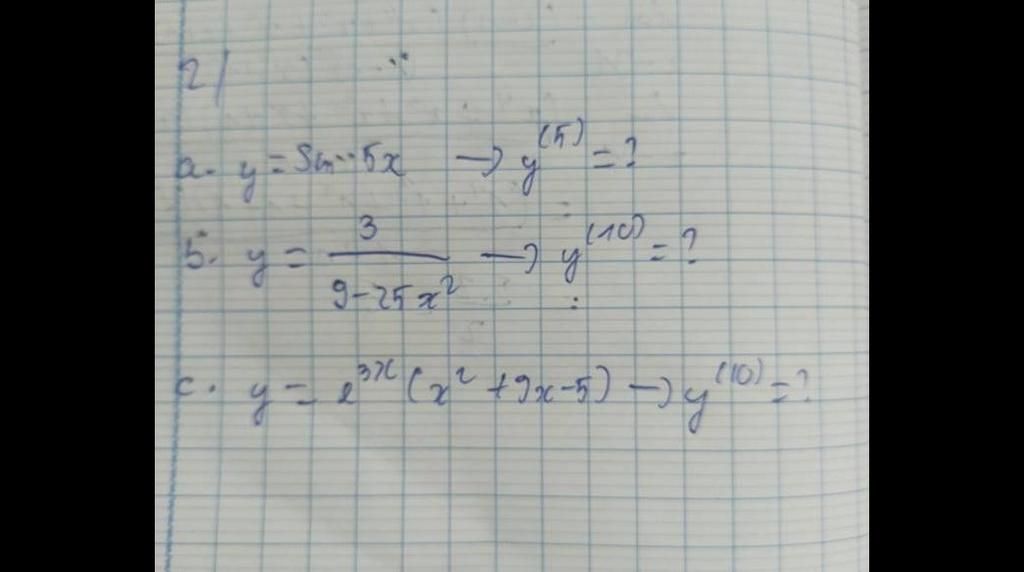 2/
a. y = Sin 5x → y⁽⁵⁾ = ?
b. y = 3/(9-25x²) → y⁽¹⁰⁾ = ?
c. y = e³ˣ (x² + 9x - 5) → y⁽¹⁰⁾ = ?